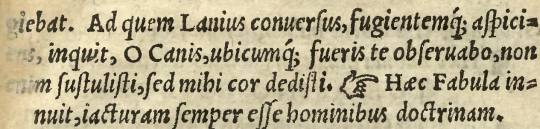 giebat. Ad quem Lanius conuersus, fugientemq́; aspici-
ens, inquit, O Canis, ubicumq́; fueris te obseruabo, non
enim sustulisti, sed mihi cor dedisti. ☞ Hæc Fabula in-
nuit, iacturam semper esse hominibus doctrinam.